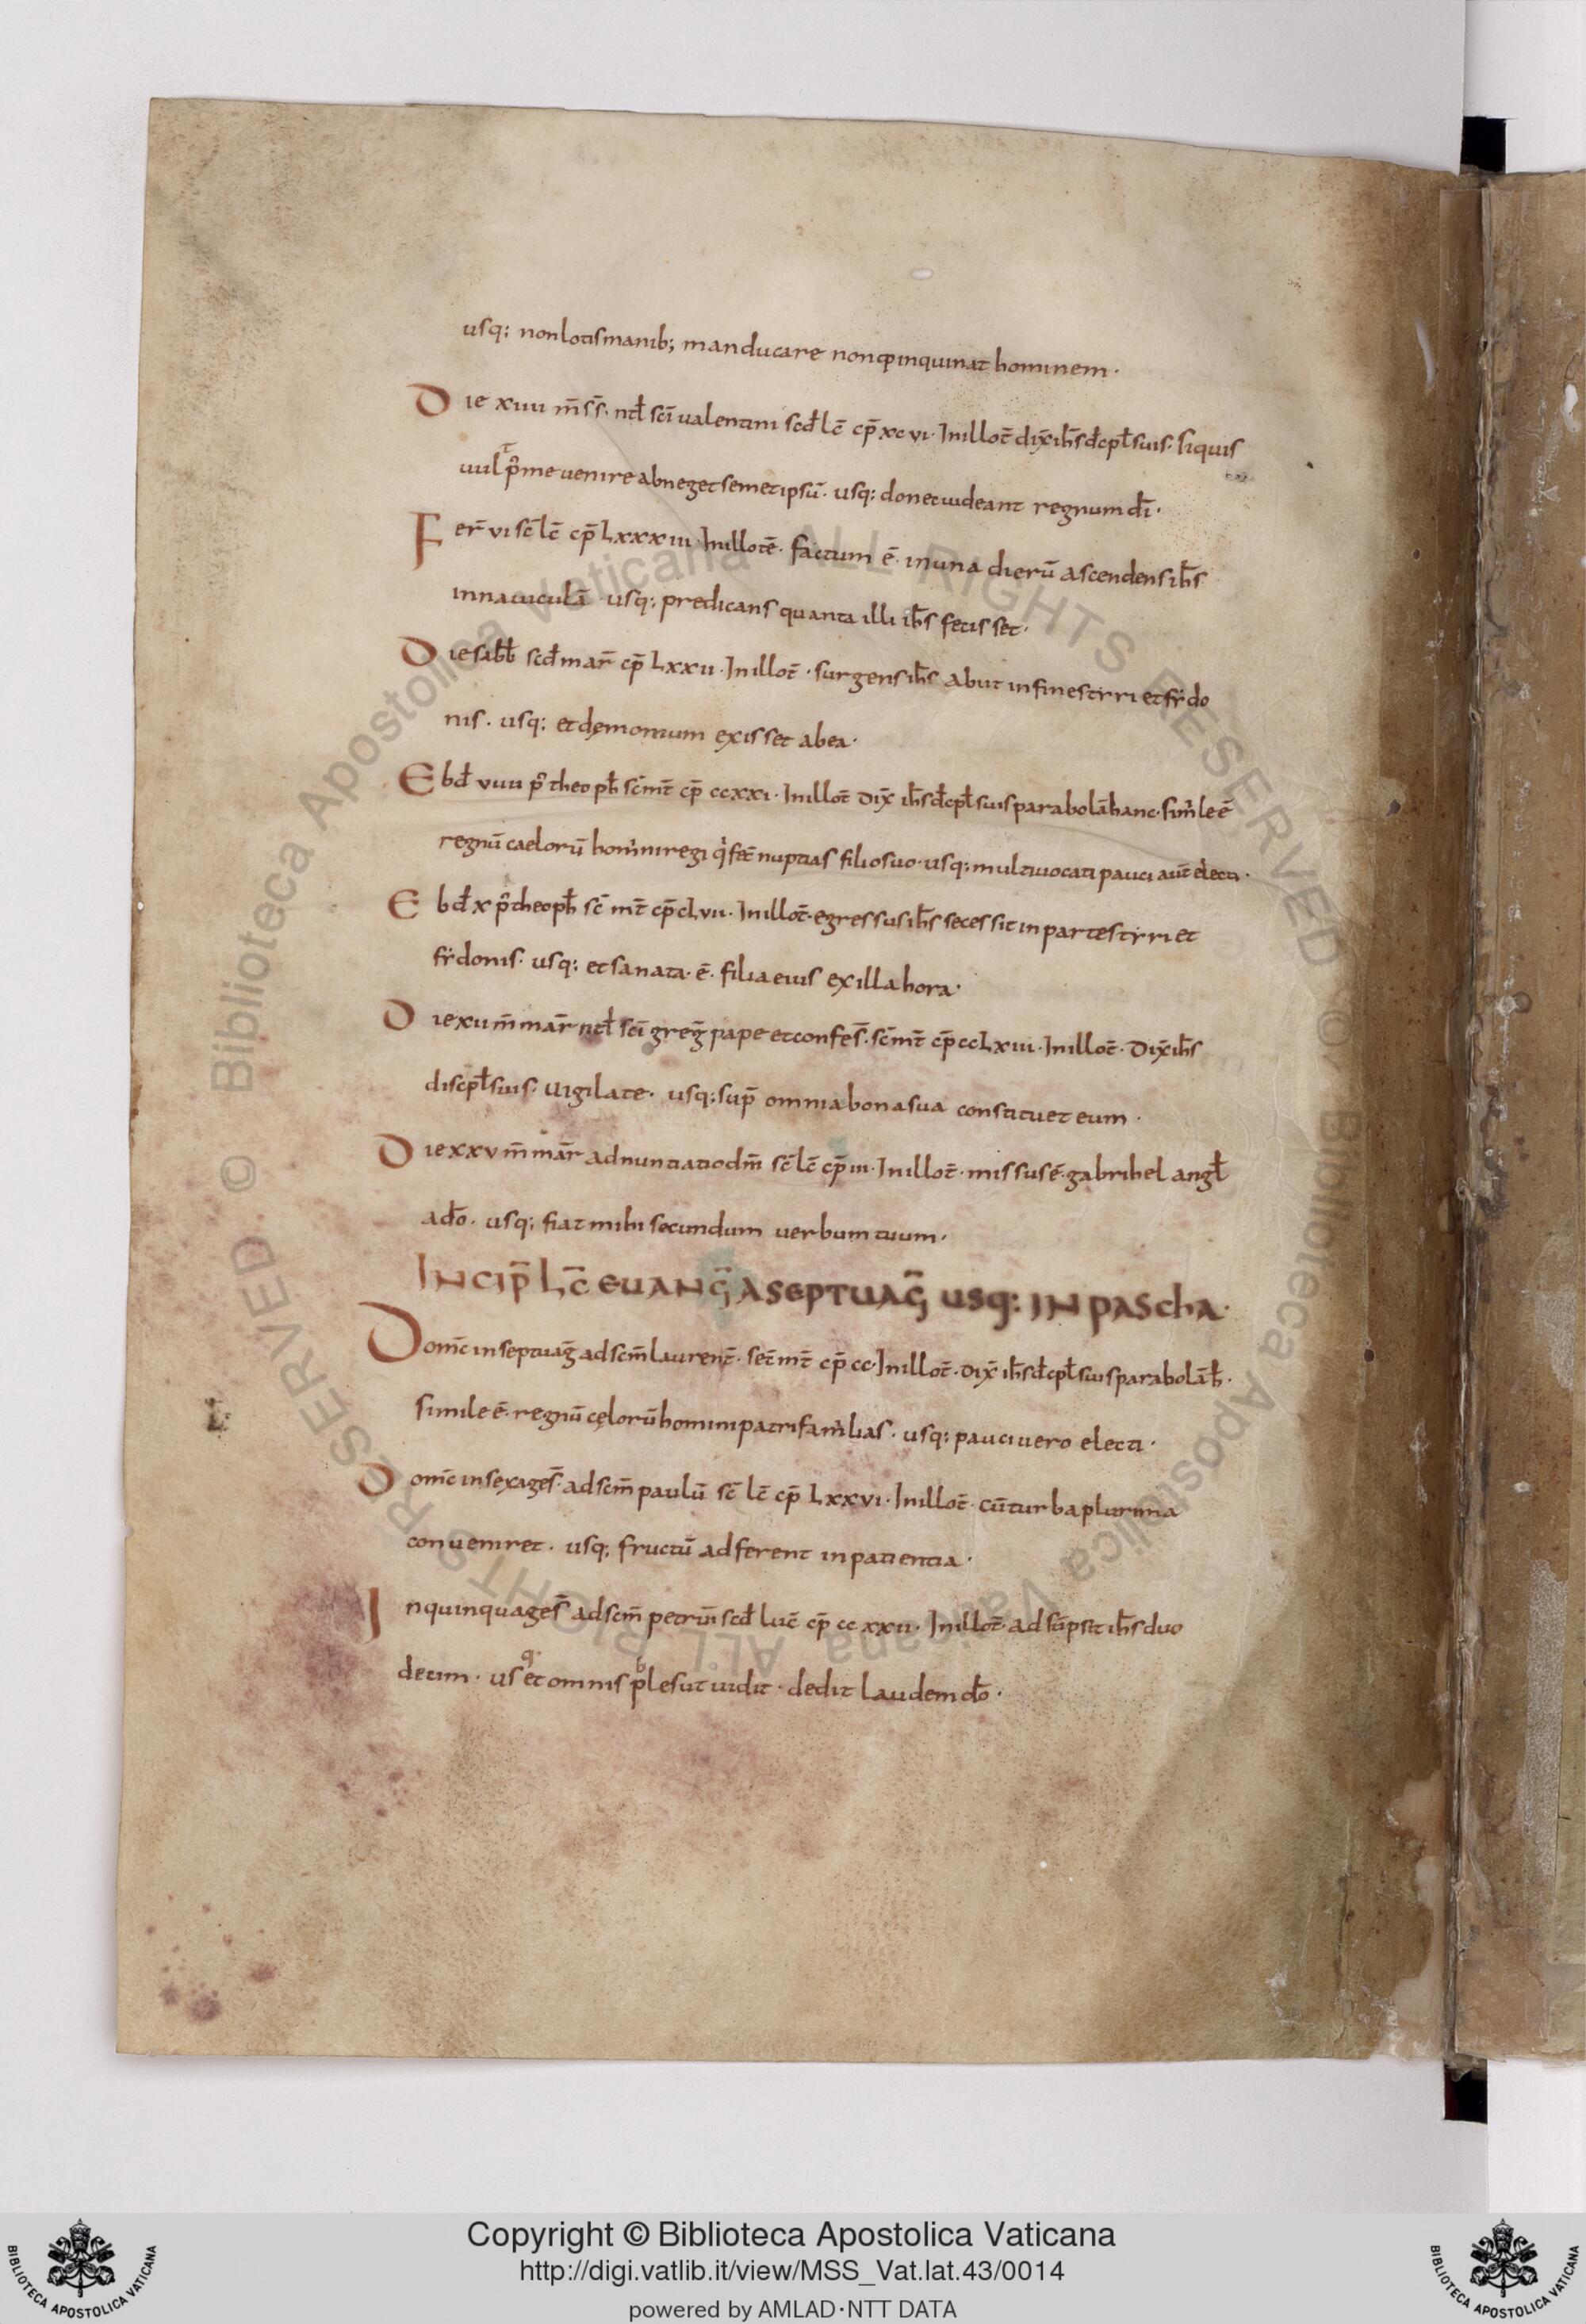 usq; non lotis manib; manducare non coinquinat hominem·
Die xiiii m̄s s̄· nt̄l sc̄i ualentini scd̄ lc̄ cp̄ xcvi· In illot̄ dix̄ ih̄s d̄cpl̄ suis· Siquis
uult p̄ me uenire abneget semetipsū· usq; donec uideant regnum dī·
Fer̄ vi sc̄ lc̄ cp̄ Lxxxiii· In illot̄ē· factum ē· in una dierū ascendens ih̄s
in nauiculā usq; predicans quanta illi ih̄s fecisset·
Die sabb̄ scd̄ mar̄ cp̄ Lxxii· In illot̄· surgens ih̄s abiit in fines tyri et sẏdo
nis· usq; et dęmonium exisset ab ea·
Ebd̄ viiii p̄ theoph̄ sc̄ mt̄ cp̄ ccxxi· In illot̄ dix̄ ih̄s d̄cpl̄ suis parabolā hanc· Simile ē
regnū caelorū homini regi qi fec̄ nuptias filio suo· usq; multi uocati pauci aut̄ electi·
Ebd̄ x p̄ theoph̄ sc̄ mt̄ cp̄ cLvii· In illot̄· egressus ih̄s secessit in partes tyri et
sẏdonis· usq; et sanata· ē· filia eius ex illa hora·
Die xii m̄ mar̄ nt̄l sc̄i greḡ pape et confes̄· sc̄ mt̄ cp̄ ccLxiii· In illot̄· Dix̄ ih̄s
discpl̄ suis· uigilate· usq; sup̄ omnia bona sua constituet eum·
Die xxv m̄ mar̄ adnuntiatio dn̄i sc̄ lc̄ cp̄ iii· In illot̄· missus ē· gabrihel angl̄
a do· usq; fiat mihi secundum verbum tuum·
INCIP̄ LC̄ EUANḠ A SEPTUAḠ usq; IN PASCHA·
Domc̄ in septuaḡ ad scm̄ laurent̄· sec̄ mt̄ cp̄ cc· In illot̄· dix̄ ih̄s d̄cpl̄ suis parabolā h̄·
simile ē· regnū cęlorū homini patri familias· usq; pauci uero electi·
Domc̄ in sexages̄· ad scm̄ paulū sc̄ lc̄ cp̄ Lxxvi· In illot̄· cū turba plurima
conueniret· usq; fructū adferent in patientia·
In quinquages̄ ad scm̄ petrū scd̄ luc̄ cp̄ ccxxii· In illot̄· adsūpsit ih̄s duo
decim· usq; et omnis plebs ut uidit· dedit laudem do·
Copyright © Biblioteca Apostolica Vaticana
http://digi.vatlib.it/view/MSS_Vat.lat.43/0014
powered by AMLAD·NTT DATA